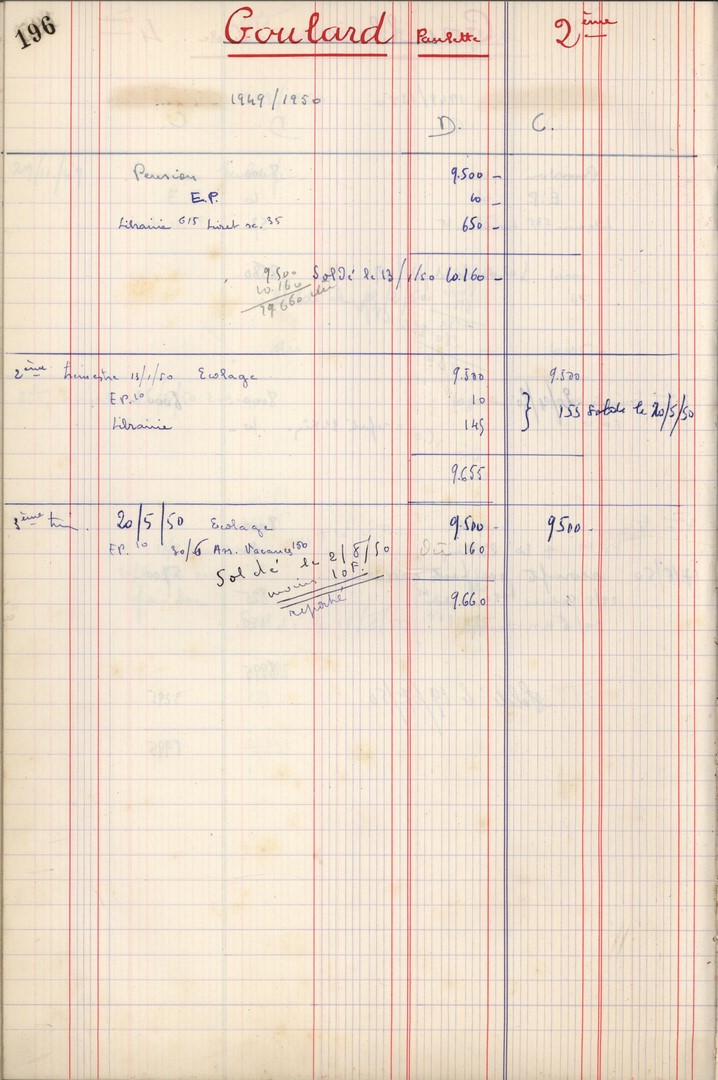 196 Goulard Paulette 2ème
1949/1950
D. C.
Pension 9.500 -
E.P. 10 -
Librairie 615 Livret sc. 35 650 -
9.500 Soldé le 13/1/50 10.160 -
10.160
19660
2ème trimestre 13/1/50 Ecolage 9.500 9.500
E.P. 10 10 } 155 solde le 20/5/50
Librairie 145
9.655
3ème tri. 20/5/50 Ecolage 9.500 - 9500 -
EP. 10 Ass. Vacances 150 Dû 160
Soldé le 2/8/50
moins 10 F.
reporté
9.660